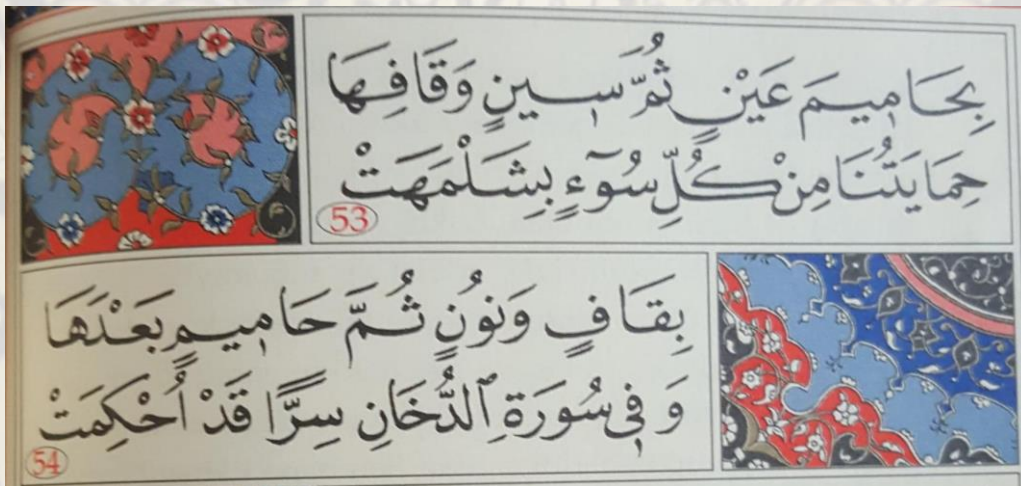 بِحَامِيمَ عَيْنٍ ثُمَّ سِينٍ وَقَافِهَا
حِمَايَتُنَا مِنْ كُلِّ سُوٓءٍ بِشَلْمَهَتْ
53
بِقَافٍ وَنُونٍ ثُمَّ حَامِيمٍ بَعْدَهَا
وَفِي سُورَةِ ٱلدُّخَانِ سِرًّا قَدْ اُحْكِمَتْ
54